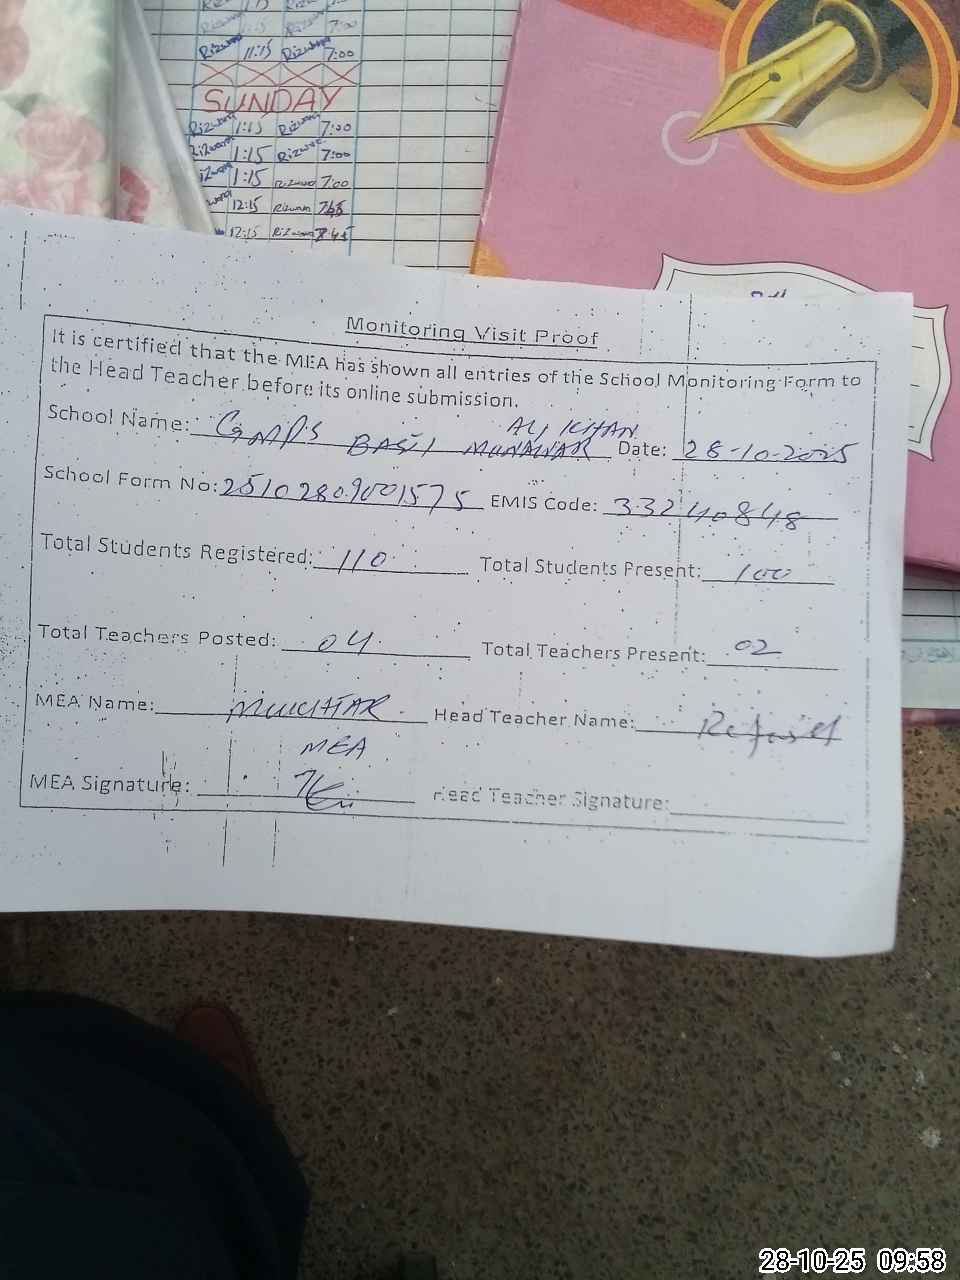 1:15 7:00
Rizwan 11:15 Rizwan 7:00
SUNDAY
Rizwan 1:15 Rizwan 7:00
Rizwan 1:15 Rizwan 7:00
1:15 Rizwan 7:00
12:15 Rizwan
12:15 Rizwan
Monitoring Visit Proof
It is certified that the MEA has shown all entries of the School Monitoring Form to
the Head Teacher before its online submission.
School Name: GMPS BASTI MUNAWAR ALI KHAN Date: 28-10-2025
School Form No: 25102809001575 EMIS Code: 33240848
Total Students Registered: 110 Total Students Present: 100
Total Teachers Posted: 04 Total Teachers Present: 02
MEA Name: MUKHTAR Head Teacher Name: Refused
MEA
MEA Signature: Head Teacher Signature:
28-10-25 09:58